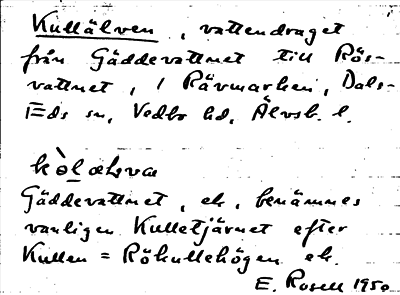 Kullälven, vattendraget
från Gäddevattnet till Rös-
vattnet, i Rävmarken, Dals-
Eds sn, Vedbo hd, Älvsb. l.
kòlælva
Gäddevattnet, ek, benämnes
vanligen Kulletjärnet efter
Kullen = Rökullehögen ek.
E. Rosell 1950